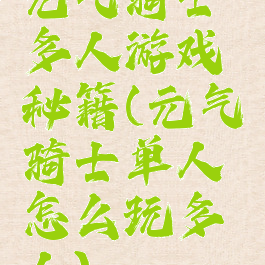 元气骑士
多人游戏
秘籍(元气
骑士单人
怎么玩多
人)